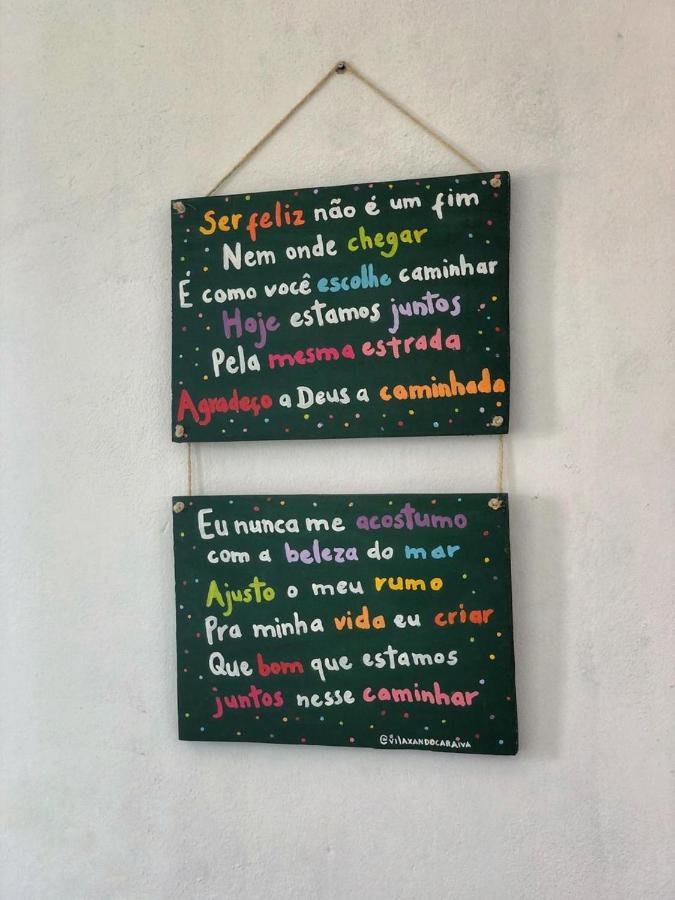 Ser feliz não é um fim
Nem onde chegar
É como você escolhe caminhar
Hoje estamos juntos
Pela mesma estrada
Agradeço a Deus a caminhada
Eu nunca me acostumo
com a beleza do mar
Ajusto o meu rumo
Pra minha vida eu criar
Que bom que estamos
juntos nesse caminhar
@vilaxandocaraiva